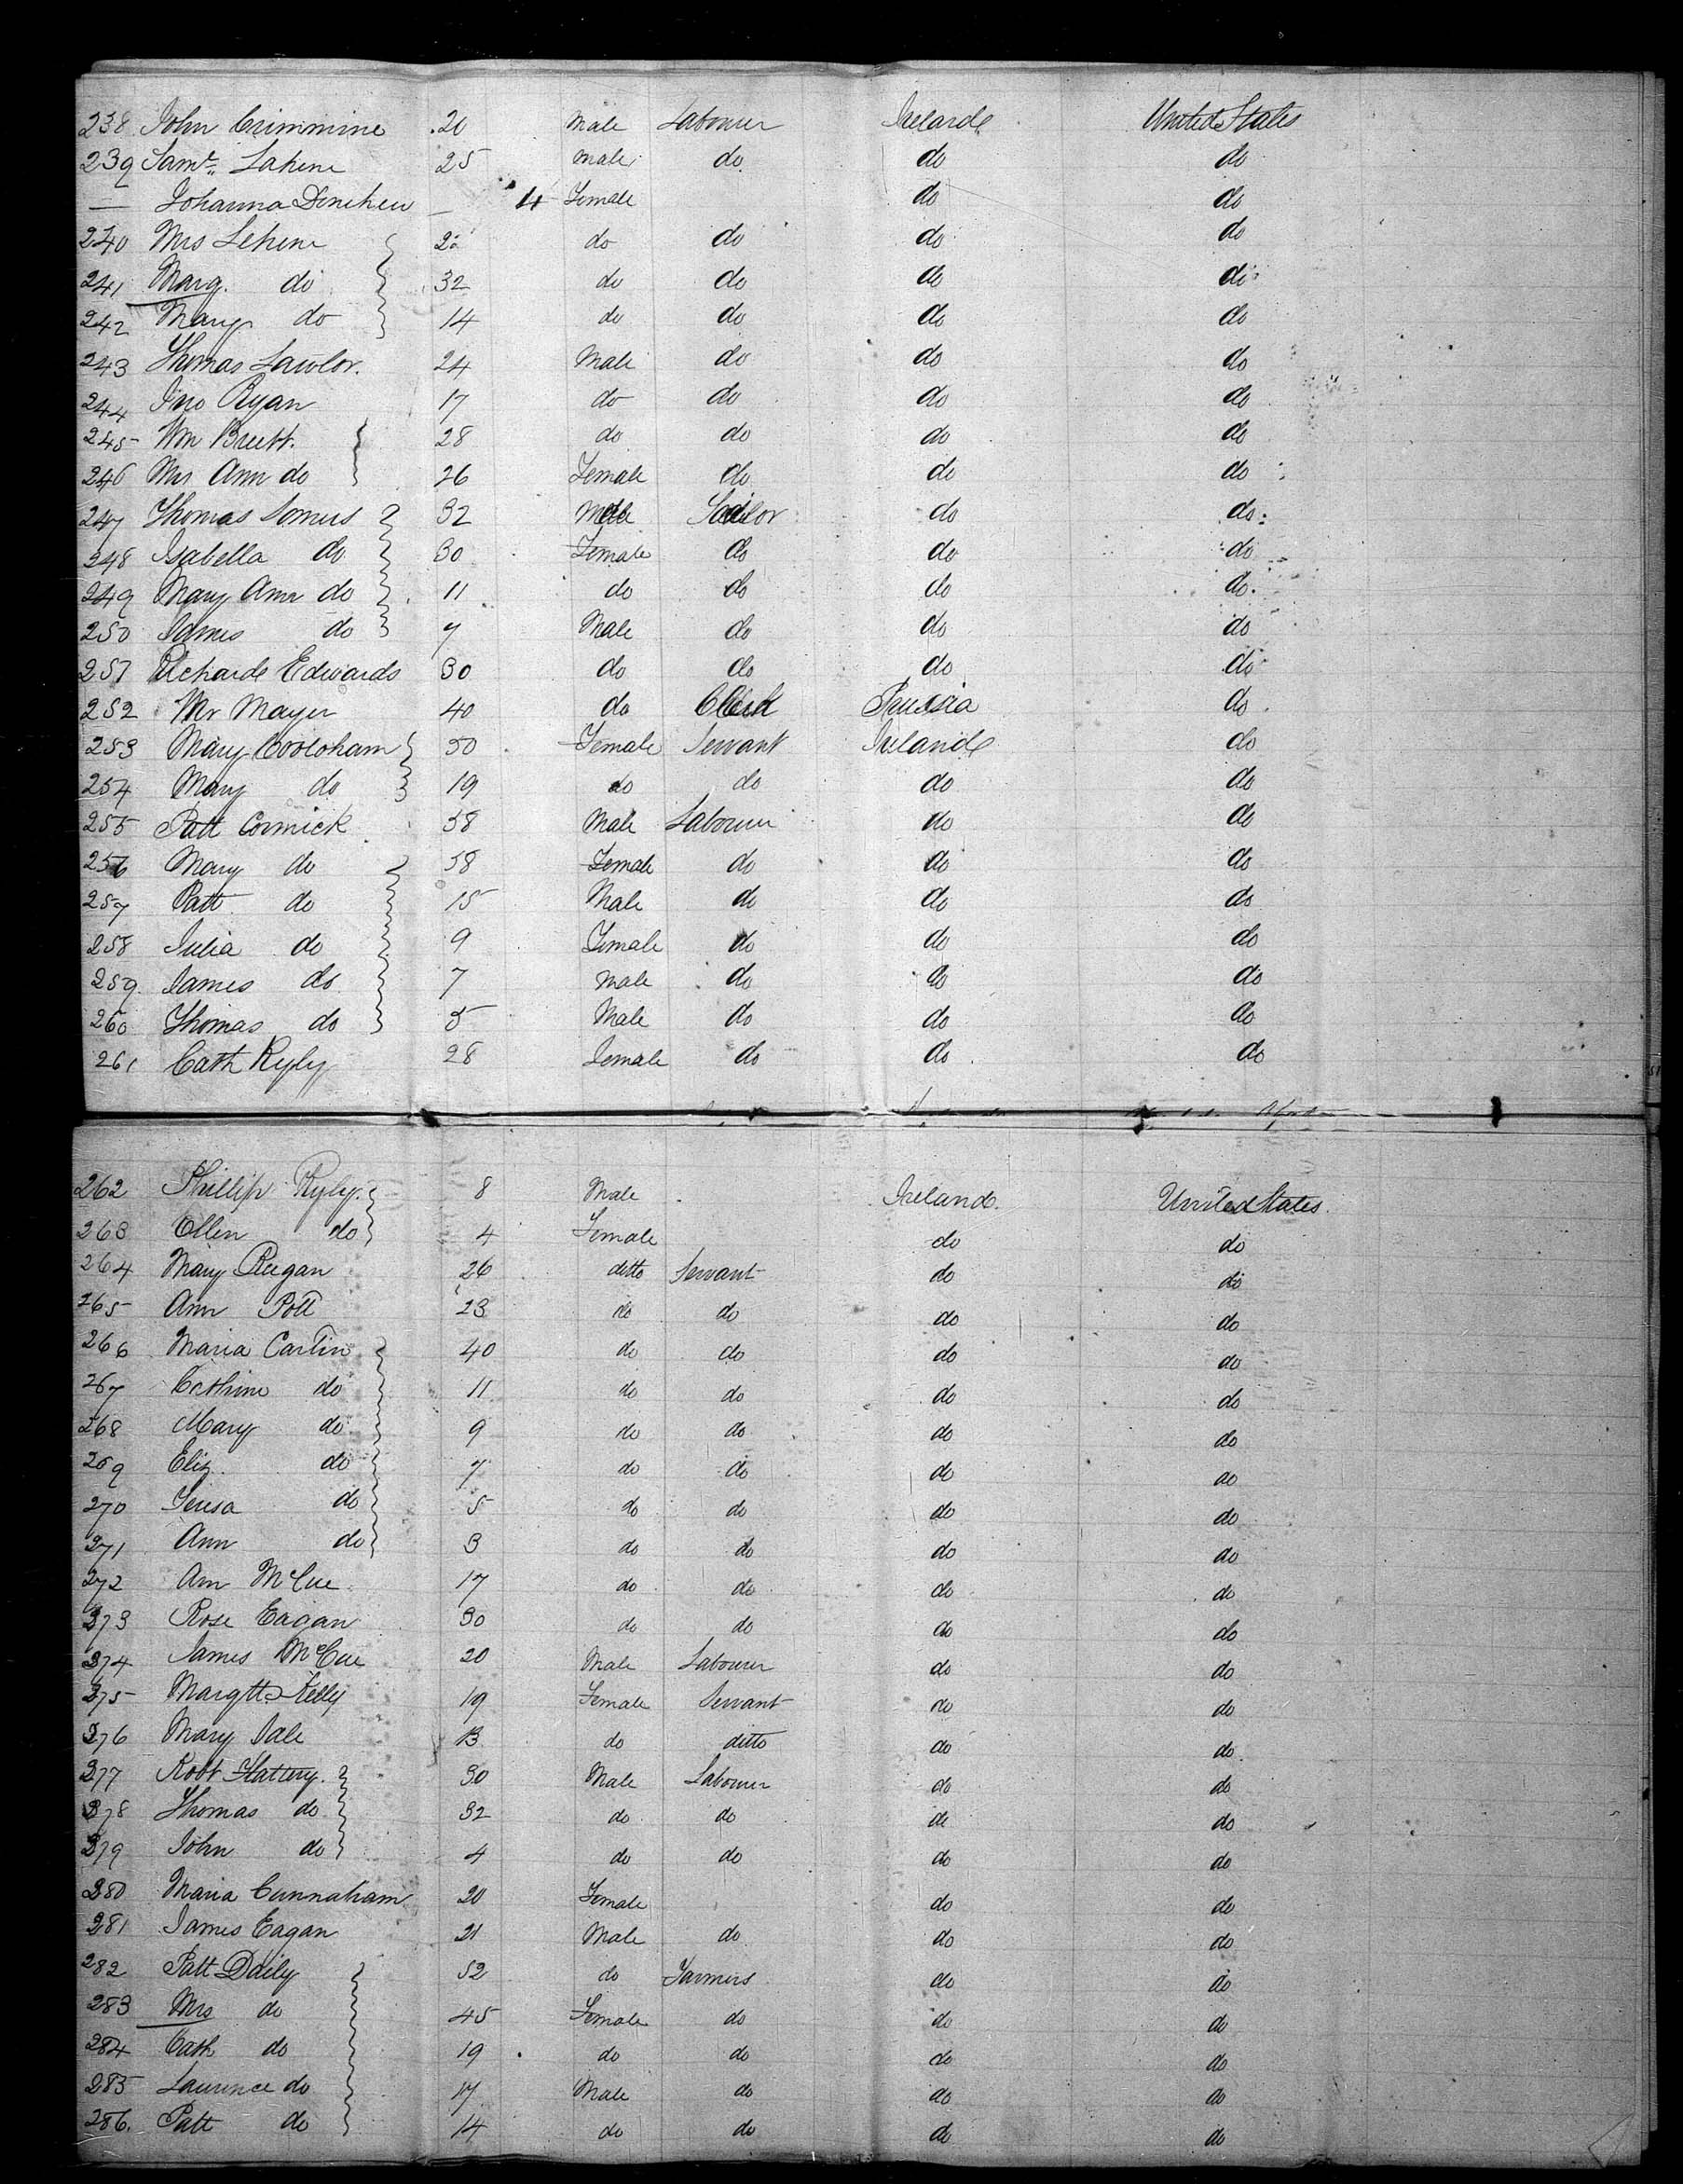 238 John Crimmine 20 Male Labourer Ireland United States
239 Saml. Lahene 25 Male do do do
— Johanna Dinehew — 4 Female do do
240 Mrs Lehene do do do do
241 Marg. do 32 do do do do
242 Mary do 14 do do do do
243 Thomas Lawlor. 24 Male do do do
244 Jno Ryan 17 do do do do
245 Wm Brett. 28 do do do do
246 Mrs Ann do 26 Female do do do
247 Thomas Somers 32 Male Sailor do do
248 Isabella do 30 Female do do do
249 Mary Ann do 11 do do do do
250 James do 7 Male do do do
251 Richard Edwards 30 do do do do
252 Mr Mayer 40 do Clerk Prussia do
253 Mary Cooloham 50 Female Servant Ireland do
254 Mary do 19 do do do do
255 Patt Cormick 58 Male Labourer do do
256 Mary do 58 Female do do do
257 Patt do 15 Male do do do
258 Julia do 9 Female do do do
259 James do 7 Male do do do
260 Thomas do 5 Male do do do
261 Cath Ryly 28 Female do do do
262 Phillip Ryly 8 Male Ireland United States
263 Ellen do 4 Female do do
264 Mary Reegan 26 ditto Servant do do
265 Ann Pott 23 do do do do
266 Maria Carlin 40 do do do do
267 Cathine do 11 do do do do
268 Mary do 9 do do do do
269 Eliz. do 7 do do do do
270 Teresa do 5 do do do do
271 Ann do 3 do do do do
272 Ann McCue 17 do do do do
273 Rose Eagan 30 do do do do
274 James McCue 20 Male Labourer do do
275 Margtt Kelly 19 Female Servant do do
276 Mary Dale 13 do ditto do do
277 Robt Slattery 30 Male Labourer do do
278 Thomas do 32 do do do do
279 John do 4 do do do do
280 Maria Cunnaham 20 Female do do
281 James Eagan 21 Male do do do
282 Patt Daily 52 do Farmers do do
283 Mrs do 45 Female do do do
284 Cath do 19 do do do do
285 Laurence do 17 Male do do do
286. Patt do 14 do do do do